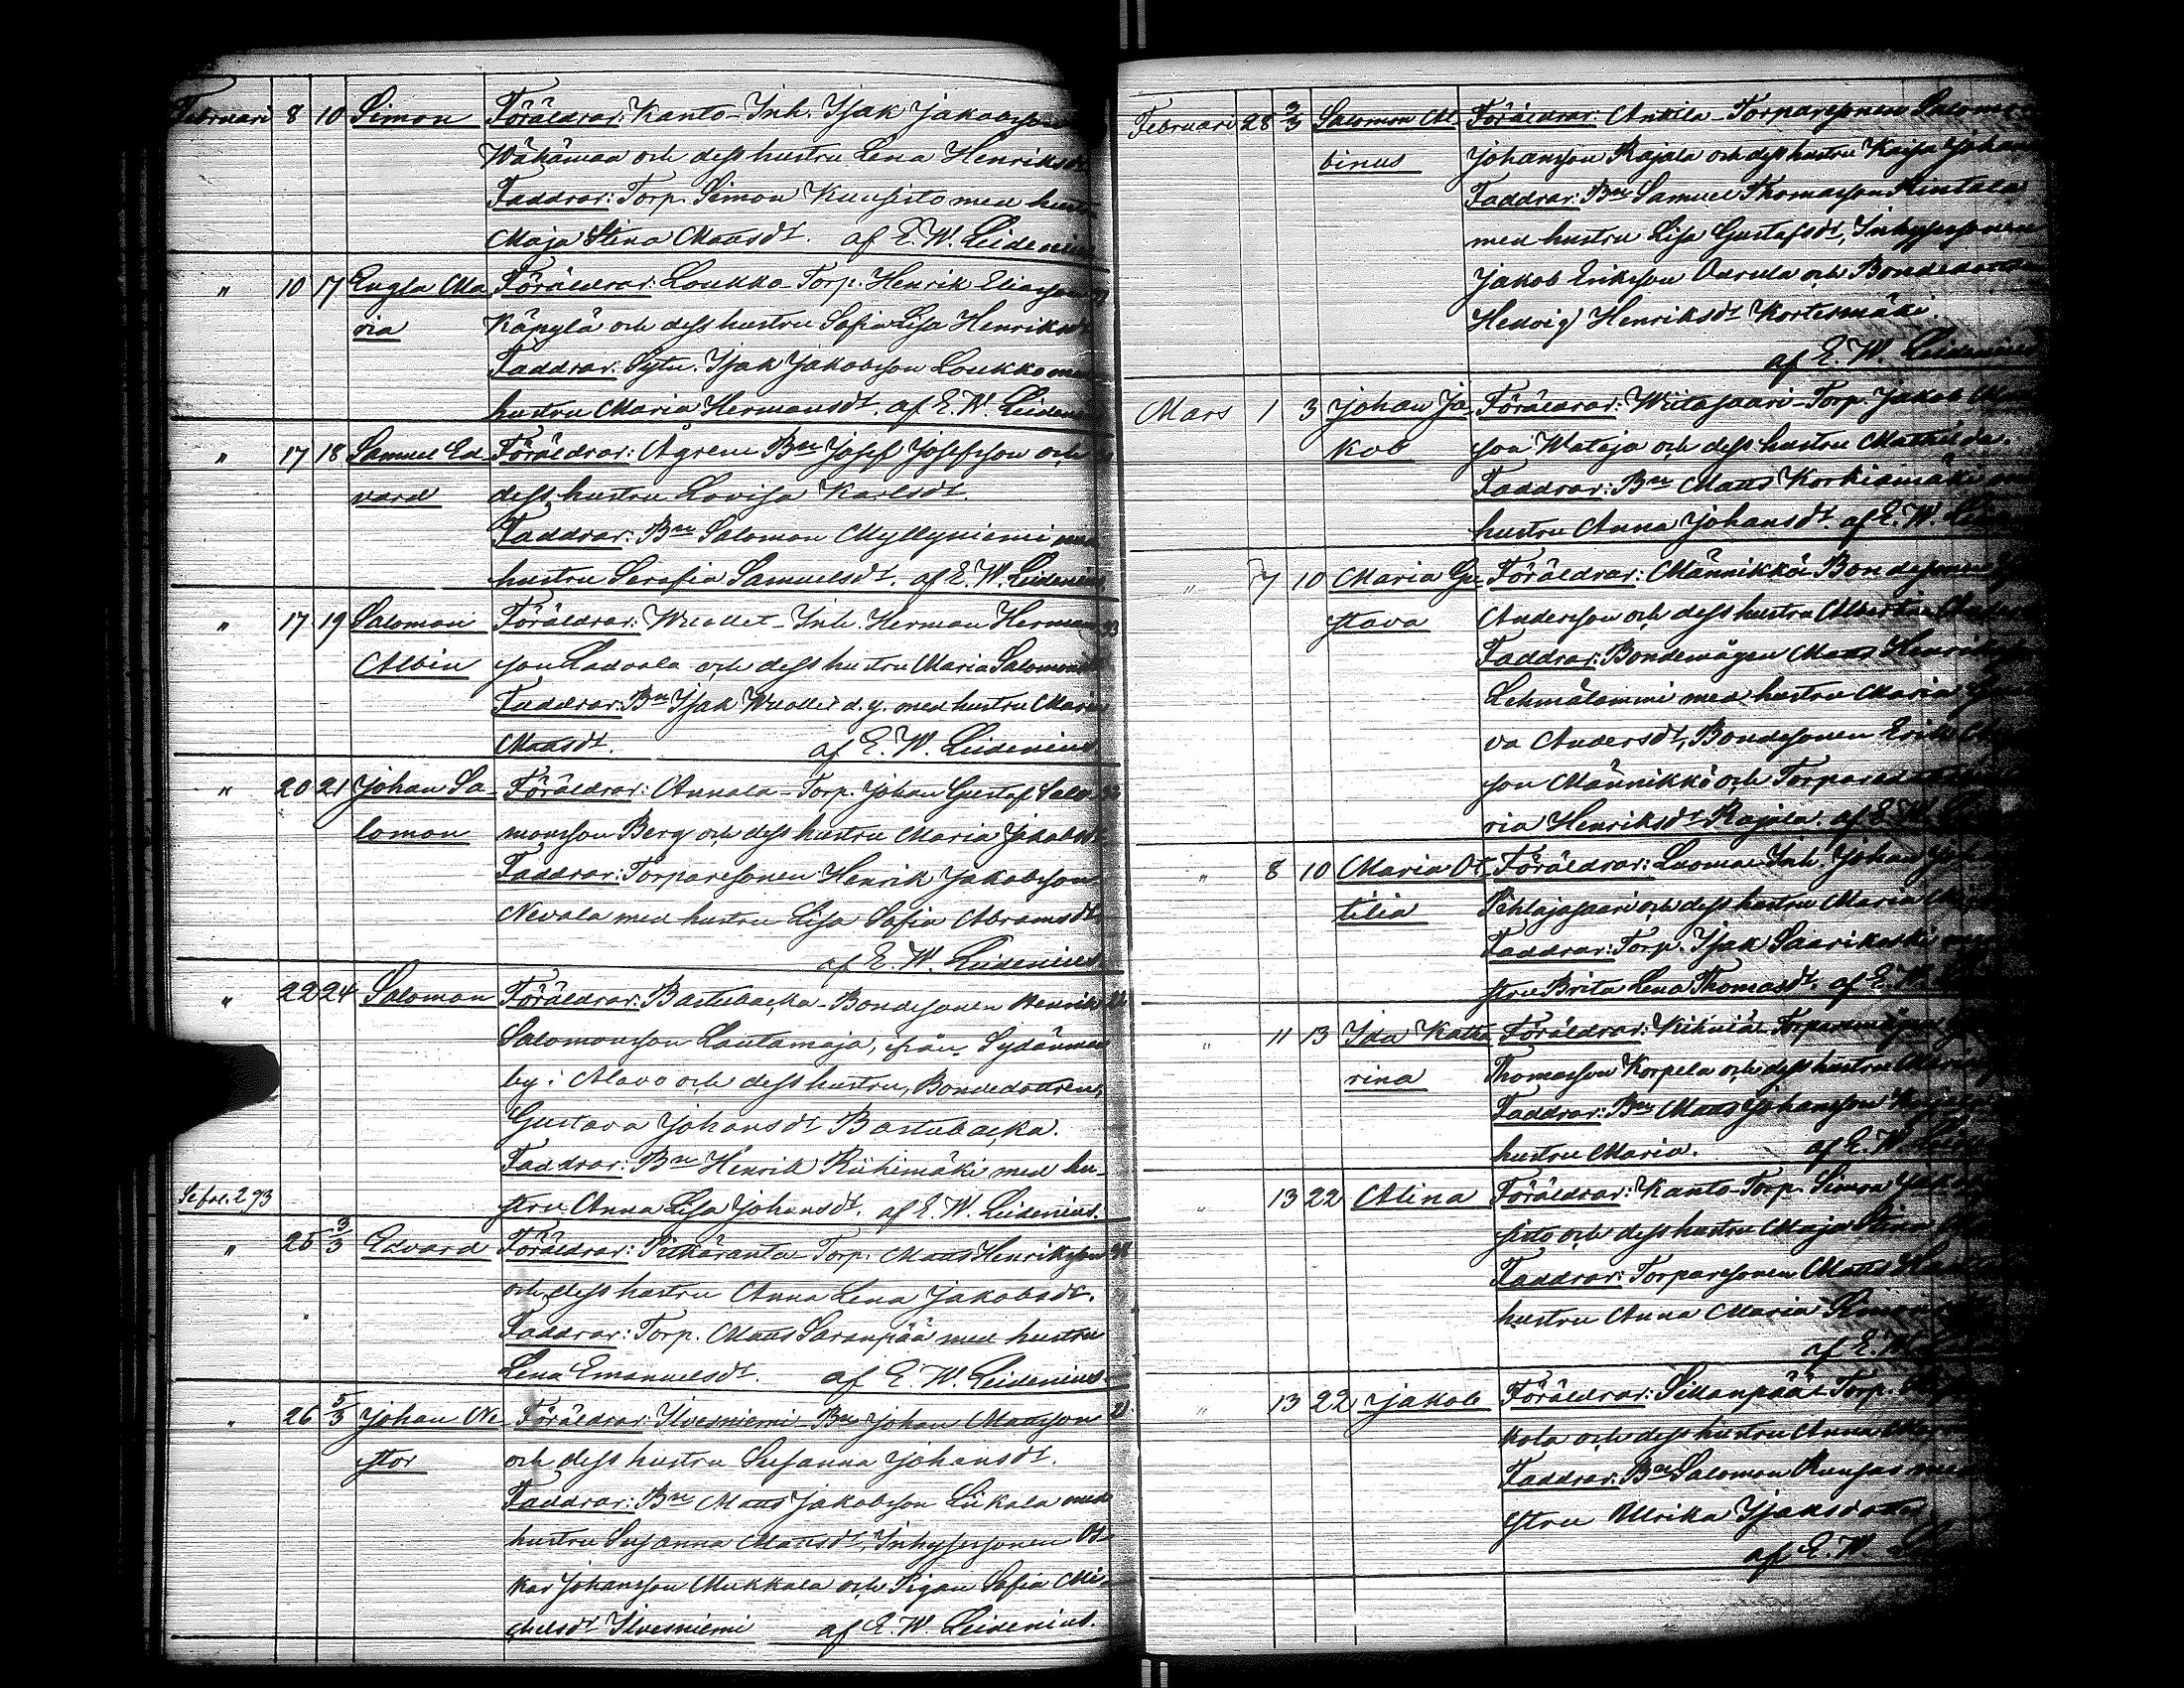 Februari 8 10 Simon Föräldrar: Kanto-Inh. Isak Jakobsson
Wähämaa och dess hustru Lena Henriksdt.
Faddrar: Torp. Simon Kuusisto med hustru
Maja Stina Mattsdt. af E. W. Leidenius
" 10 17 Engla Ma Föräldrar: Loukko-Torp. Henrik Eliasson
ria Käpylä och dess hustru Sofia Lisa Henriksdt
Faddrar: Sytn. Isak Jakobsson Loukko med
hustru Maria Hermansdt. af E. W. Leidenius
" 17 18 Samuel Ed Föräldrar: Ågren Bn Josef Josefsson och
vard dess hustru Lovisa Karlsdt.
Faddrar: Bn Salomon Myllyniemi med
hustru Serafia Samuelsdt. af E. W. Leidenius
" 17 19 Salomon Föräldrar: Wuollet-Inh. Herman Herman
Albin son Ladvala och dess hustru Maria Salomonsdt
Faddrar: Bn Isak Wuollet d.y. med hustru Maria
Mattsdt. af E. W. Leidenius
" 20 21 Johan Sa- Föräldrar: Annala-Torp. Johan Gustaf Salo
lomon monsson Berg och dess hustru Maria Jakobsdt
Faddrar: Torparesonen Henrik Jakobsson
Nevala med hustru Lisa Sofia Abramsdt
af E. W. Leidenius
" 22 24 Salomon Föräldrar: Bastubacka-Bondesonen Henrik
Salomonsson Lautamaja, från Sydänmaa
by i Alavo och dess hustru, Bondedottren,
Gustava Johansdt Bastubacka.
Faddrar: Bn Henrik Riihimäki med hu-
Se fol. 293 stru Anna Lisa Johansdt. af E. W. Leidenius.
" 25 3/3 Edvard Föräldrar: Pitkäranta-Torp. Matts Henriksson
och dess hustru Anna Lena Jakobsdt.
Faddrar: Torp. Matts Saranpää med hustru
Lena Emanuelsdt. af E. W. Leidenius.
" 26 5/3 Johan Ne Föräldrar: Ilvesniemi-Bn Johan Mattsson
stor och dess hustru Susanna Johansdt.
Faddrar: Bn Matts Jakobsson Liikala med
hustru Susanna Mattsdt, Inhysessonen Os-
kar Johansson Mukkala och Pigan Sofia Mi-
chelsdt Ilvesniemi af E. W. Leidenius.
Februari 28 3/3 Salomon Al Föräldrar: Anttila-Torparesonen Salomon
binus Johansson Rajala och dess hustru Kaisa Johan
Faddrar: Bn Samuel Thomasson Rintala
med hustru Lisa Gustafsdt, Inhysessonen
Jakob Eriksson och Bondedottren
Hedvig Henriksdt Kortesmäki.
af E. W. Leidenius
Mars 1 3 Johan Ja Föräldrar: Wiitasaari-Torp. Jakob
kob son Wataja och dess hustru Mathilda.
Faddrar: Bn Matts Korkiamäki
hustru Anna Johansdt af E. W.
" 7 10 Maria Gu Föräldrar: Männikkö Bondesonen
stava Andersson och dess hustru Albertina
Faddrar: Bondemågen Matts Henriksson
Lehmälammi med hustru Maria
va Andersdt, Bondesonen Erik
son Männikkö och
ria Henriksdt Rajala. af E. W.
" 8 10 Maria Ot Föräldrar: Luoma-Inh. Johan
tilia Pihlajasaari och dess hustru Maria
Faddrar: Torp. Isak Saarikoski
stru Brita Lena Thomasdt. af E. W.
" 11 13 Ida Katha Föräldrar: Kihniä Torparemågen
rina Thomasson Korpela och dess hustru
Faddrar: Bn Matts Johansson
hustru Maria. af E. W.
" 13 22 Alina Föräldrar: Kanto-Torp. Simon
sisto och dess hustru Maja Stina
Faddrar: Torparesonen Matts
hustru Anna Maria
af E. W.
" 13 22 Jakob Föräldrar: Sillanpää-Torp.
kola och dess hustru Anna
Faddrar: Bn Salomon med
stru Ulrika
af E. W.